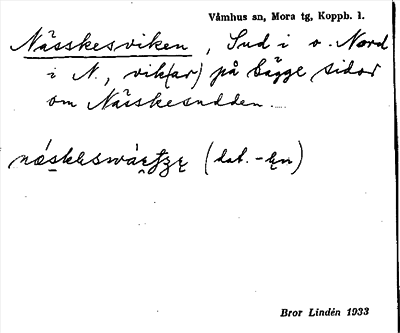 Våmhus sn, Mora tg, Koppb. l.
Nässkesviken, Sud i o. Nord
i N., vik(ar) på bägge sidor
om Nässkesudden.
(dat. -ęn)
Bror Lindén 1933